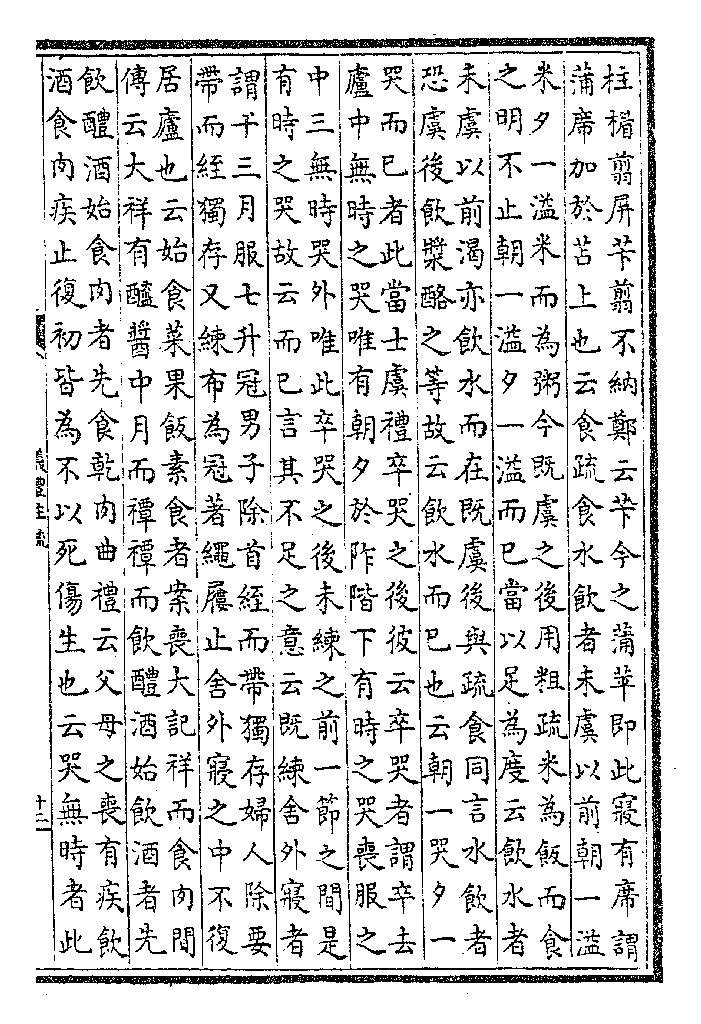 柱楣翦屏苄翦不納鄭云苄今之蒲苹即此寢有席謂
蒲席加於苫上也云食疏食水飲者未虞以前朝一溢
米夕一溢米而為粥今既虞之後用粗疏米為飯而食
之明不止朝一溢夕一溢而已當以足為度云飲水者
未虞以前渴亦飲水而在既虞後與疏食同言水飲者
恐虞後飲漿酪之等故云飲水而巳也云朝一哭夕一
哭而巳者此當士虞禮卒哭之後彼云卒哭者謂卒去
廬中無時之哭唯有朝夕於阼階下有時之哭喪服之
中三無時哭外唯此卒哭之後未練之前一節之間是
有時之哭故云而巳言其不足之意云既練舍外寢者
謂十三月服七升冠男子除首絰而帶獨存婦人除要
帶而絰獨存又練布為冠著繩屨止舍外寢之中不復
居廬也云始食菜果飯素食者案喪大記祥而食肉間
傳云大祥有醯醬中月而禫禫而飲醴酒始飲酒者先
飲醴酒始食肉者先食乾肉曲禮云父母之喪有疾飲
酒食肉疾止復初皆為不以死傷生也云哭無時者此
儀禮注疏
十二